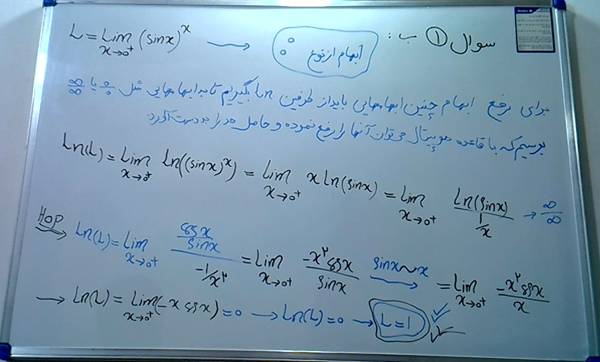 سوال ① ب: L = Lim x→0⁺ (sinx)^x → ابهام از نوع 0⁰
برای رفع ابهام چنین ابهام‌هایی باید از طرفین Ln بگیریم تا به ابهام‌هایی مثل 0/0 یا ∞/∞
برسیم که با قاعده هوپیتال می‌توان آنها را رفع نموده و حاصل حد را به دست آورد
Ln(L) = Lim x→0⁺ Ln((sinx)^x) = Lim x→0⁺ x Ln(sinx) = Lim x→0⁺ Ln(sinx) / (1/x) → ∞/∞
HOP ⇒ Ln(L) = Lim x→0⁺ (cosx/sinx) / (-1/x²) = Lim x→0⁺ -x² cosx / sinx sinx~x → = Lim x→0⁺ -x² cosx / x
→ Ln(L) = Lim x→0⁺ (-x cosx) = 0 → Ln(L) = 0 → L = 1 ✓✓